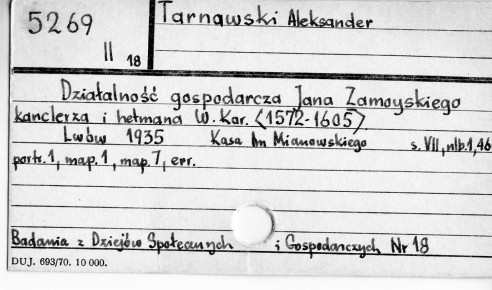 5269
II 18
Tarnawski Aleksander
Działalność gospodarcza Jana Zamoyskiego
kanclerza i hetmana W. Kor. (1572-1605)
Lwów 1935 Kasa Im Mianowskiego s. VII, nlb. 1, 46
portr. 1, map. 1, map. 7, err.
Badania z Dziejów Społecznych i Gospodarczych Nr 18
DUJ. 693/70. 10 000.